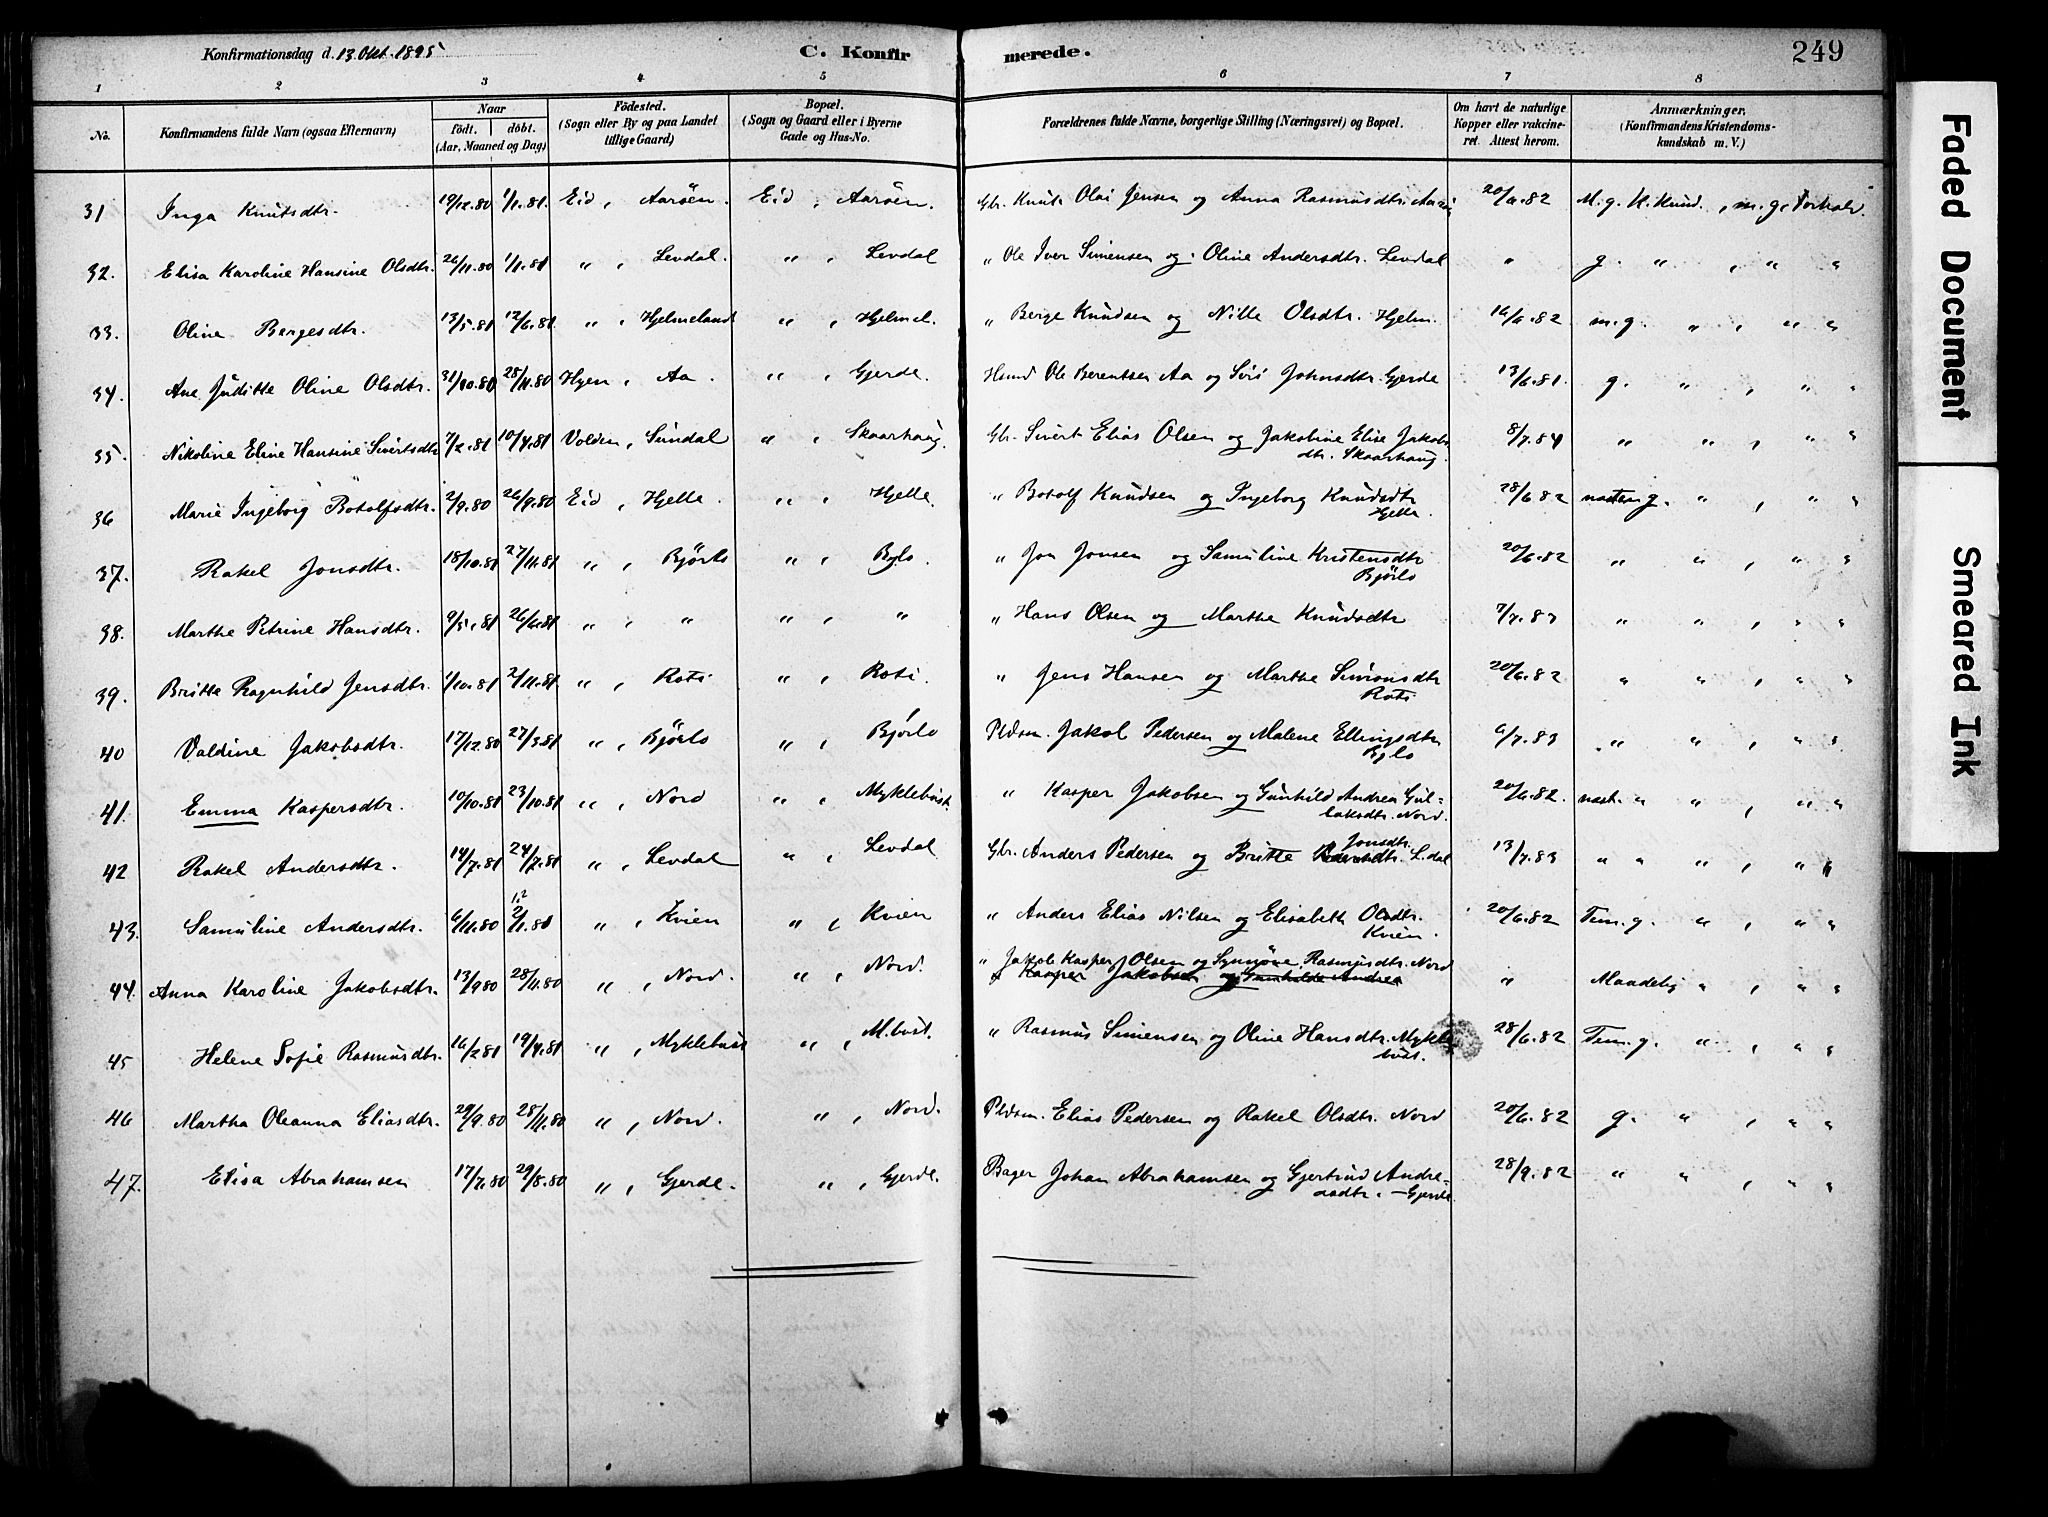 Konfirmationsdag d. 13. Okt. 1895 C. Konfirmerede. 249
1 2 3 4 5 6 7 8
No. Konfirmandens fulde Navn (ogsaa Efternavn) Naar födt. döbt. (Aar, Maaned og Dag) Födested. (Sogn eller By og paa Landet tillige Gaard) Bopæl. (Sogn og Gaard eller i Byerne Gade og Hus-No. Forældrenes fulde Navne, borgerlige Stilling (Næringsvei) og Bopæl. Om havt de naturlige Kopper eller vakcineret. Attest herom. Anmærkninger. (Konfirmandens Kristendomskundskab m. V.)
31 Inga Knutsdtr. 19/12.80 1/1.81. Eid, Aaröen. Eid, Aaröen. Gbr. Knut Olai Jensen og Anna Rasmusdtr. 20/6.82 M.g. K. Kund., m.g. Forhold.
32. Elisa Karoline Hansine Olsdtr. 26/11.80 1/1.81 „ , Levdal. „ , Levdal „ Ole Iver Simensen og Oline Andersdtr. Levdal „ g. „ , „ „
33. Oline Bergesdtr. 13/5.81 12/6.81 „ , Hjelmeland „ , Hjelmel. „ Berge Knudsen og Nille Olsdtr. Hjelm. 16/6.82 m.g. „ , „ „
34. Ane Juditte Oline Olsdtr. 31/10.80 28/11.80 Hyen, Aa. „ , Gjerde. Husmd Ole Berentsen Aa og Siri Johnsdtr. Gjerde 13/6.81. g. „ , „ „
35. Nikoline Eline Hansine Sivertsdtr 7/2.81 10/4.81 Volden, Sundal „ , Skaarhaug. Gbr. Sivert Elias Olsen og Jakobine Elise Jakobs
dtr. Skaarhaug. 8/7.84 „ „ , „ „
36 Marie Ingeborg Botolfsdtr. 2/9.80 26/9.80 Eid, Hjelle. „ , Hjelle. „ Botolf Knudsen og Ingeborg Knudsdtr
Hjelle. 28/6.82 næsten g. „ , „ „
37. Rakel Jonsdtr. 18/10.81 27/11.81 „ , Bjørlo „ , Bjlo. „ Jon Jonsen og Samuline Kristensdtr
Bjørlo 20/6.82 „ „ , „ „
38. Marthe Petrine Hansdtr. 9/5.81 26/6.81 „ , „ „ , „ „ Hans Olsen og Marthe Knudsdtr 7/7.83 „ „ , „ „
39. Britte Ragnhild Jensdtr. 1/10.81 2/11.81 „ , Roti „ , Roti. „ Jens Hansen og Marthe Simonsdtr
Roti 20/6.82 „ „ , „ „
40 Valdine Jakobsdtr. 17/12.80 27/3.81 „ , Bjørlo „ , Bjørlo Pldsm. Jakob Pedersen og Malene Ellingsdtr
Bjlo 6/7.83 „ „ , „ „
41. Emma Kaspersdtr. 10/10.81 23/10.81 „ , Nord „ , Myklebust „ Kasper Jakobsen og Gunhild Andrea Gul-
laksdtr. Nord. 20/6.82. næst. „ „ , „ „
42 Rakel Andersdtr. 14/7.81 24/7.81 „ , Levdal „ , Levdal Gbr. Anders Pedersen og Britte Jonsdtr. L.dal 13/7.83 „ „ „ , „ „
43. Samuline Andersdtr. 6/11.80 2/1.81 „ , Kvien „ , Kvien „ Anders Elias Nilsen og Elisabeth Olsdtr.
Kvien. 20/6.82 Tem. g. „ , „ „
44. Anna Karoline Jakobsdtr. 13/9.80 28/11.80 „ , Nord. „ , Nord. „ Jakob Kasper Olsen og Synnöve Rasmusdtr. Nord
Kasper Jakobsen og Gunhilde Andrea „ Maadelig „ , „ „
45 Helene Sofie Rasmusdtr. 16/2.81 19/4.81 „ , Myklebust „ , M.bust. „ Rasmus Simensen og Oline Hansdtr. Mykle
bust. 28/6.82 Tem. g. „ , „ „
46 Martha Oleanna Eliasdtr. 29/9.80 28/11.80 „ , Nord. „ , Nord. Pldsm. Elias Pedersen og Rakel Olsdtr. Nord 20/6.82 g. „ , „ „
47. Elisa Abrahamsen 17/7.80 29/8.80 „ , Gjerde. „ , Gjerde. Bager Johan Abrahamsen og Gjertrud Andre-
asdtr. – Gjerde. 28/9.82 „ „ , „ „
Faded Document
Smeared Ink